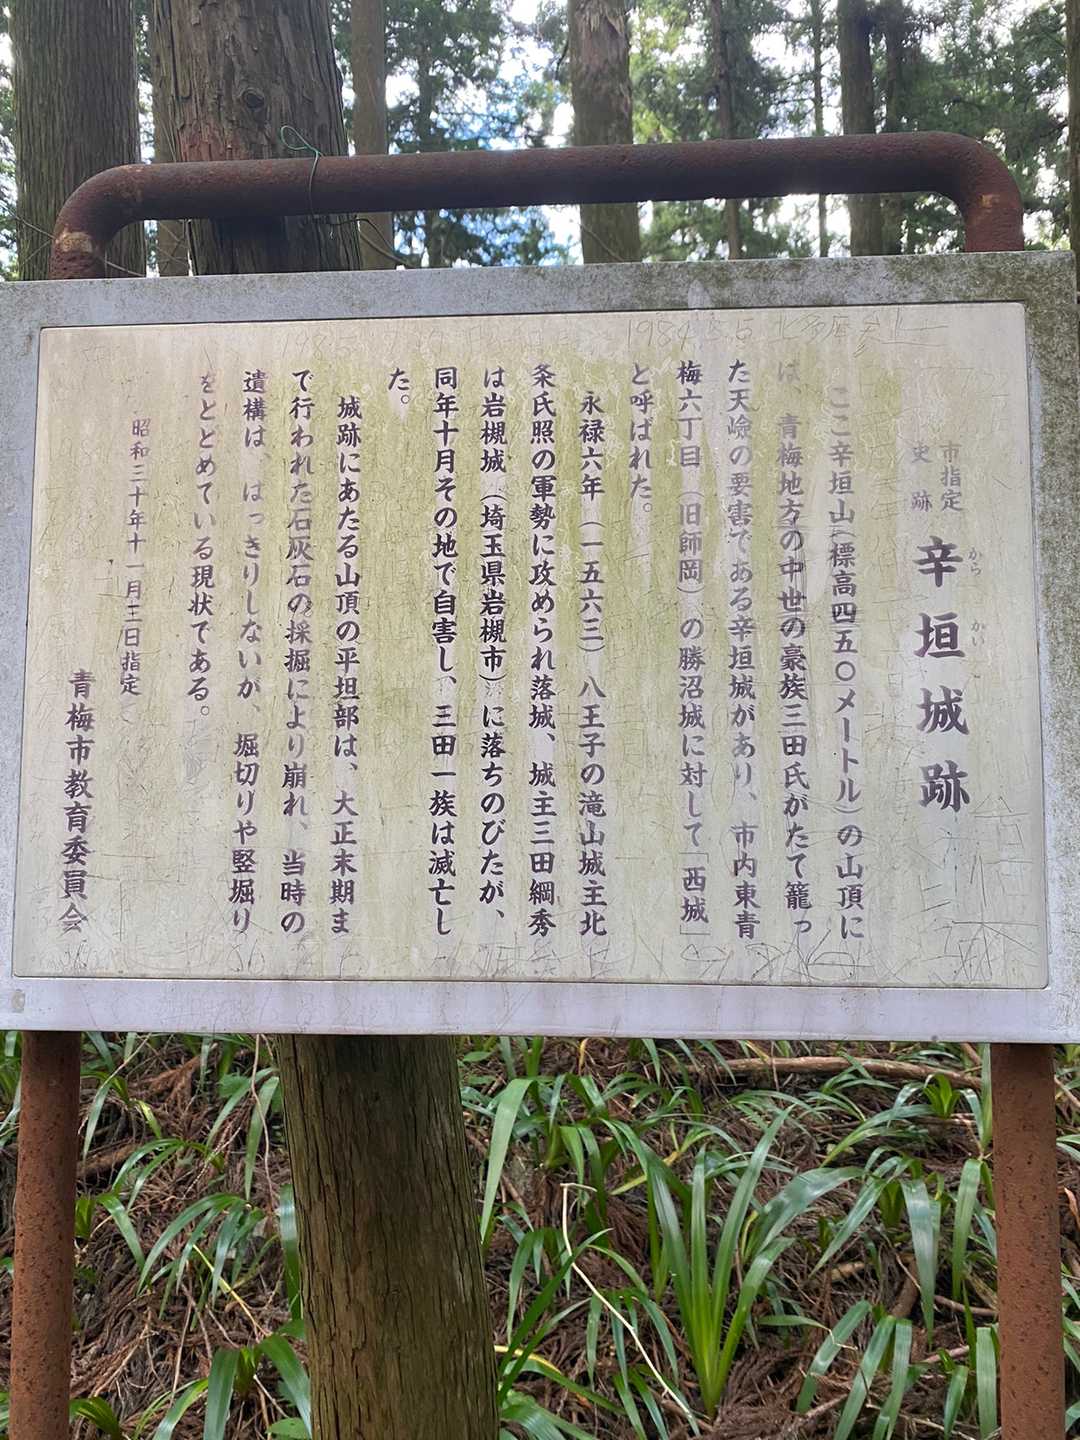 市指定
史跡
辛垣城跡
から かい
ここ辛垣山(標高四五〇メートル)の山頂に
は、青梅地方の中世の豪族三田氏がたて籠っ
た天嶮の要害である辛垣城があり、市内東青
梅六丁目(旧師岡)の勝沼城に対して「西城」
と呼ばれた。
永禄六年(一五六三)八王子の滝山城主北
条氏照の軍勢に攻められ落城、城主三田綱秀
は岩槻城(埼玉県岩槻市)に落ちのびたが、
同年十月その地で自害し、三田一族は滅亡し
た。
城跡にあたる山頂の平坦部は、大正末期ま
で行われた石灰石の採掘により崩れ、当時の
遺構は、はっきりしないが、堀切りや竪堀り
をとどめている現状である。
昭和三十年十一月三日指定
青梅市教育委員会
1984.5.5
1985